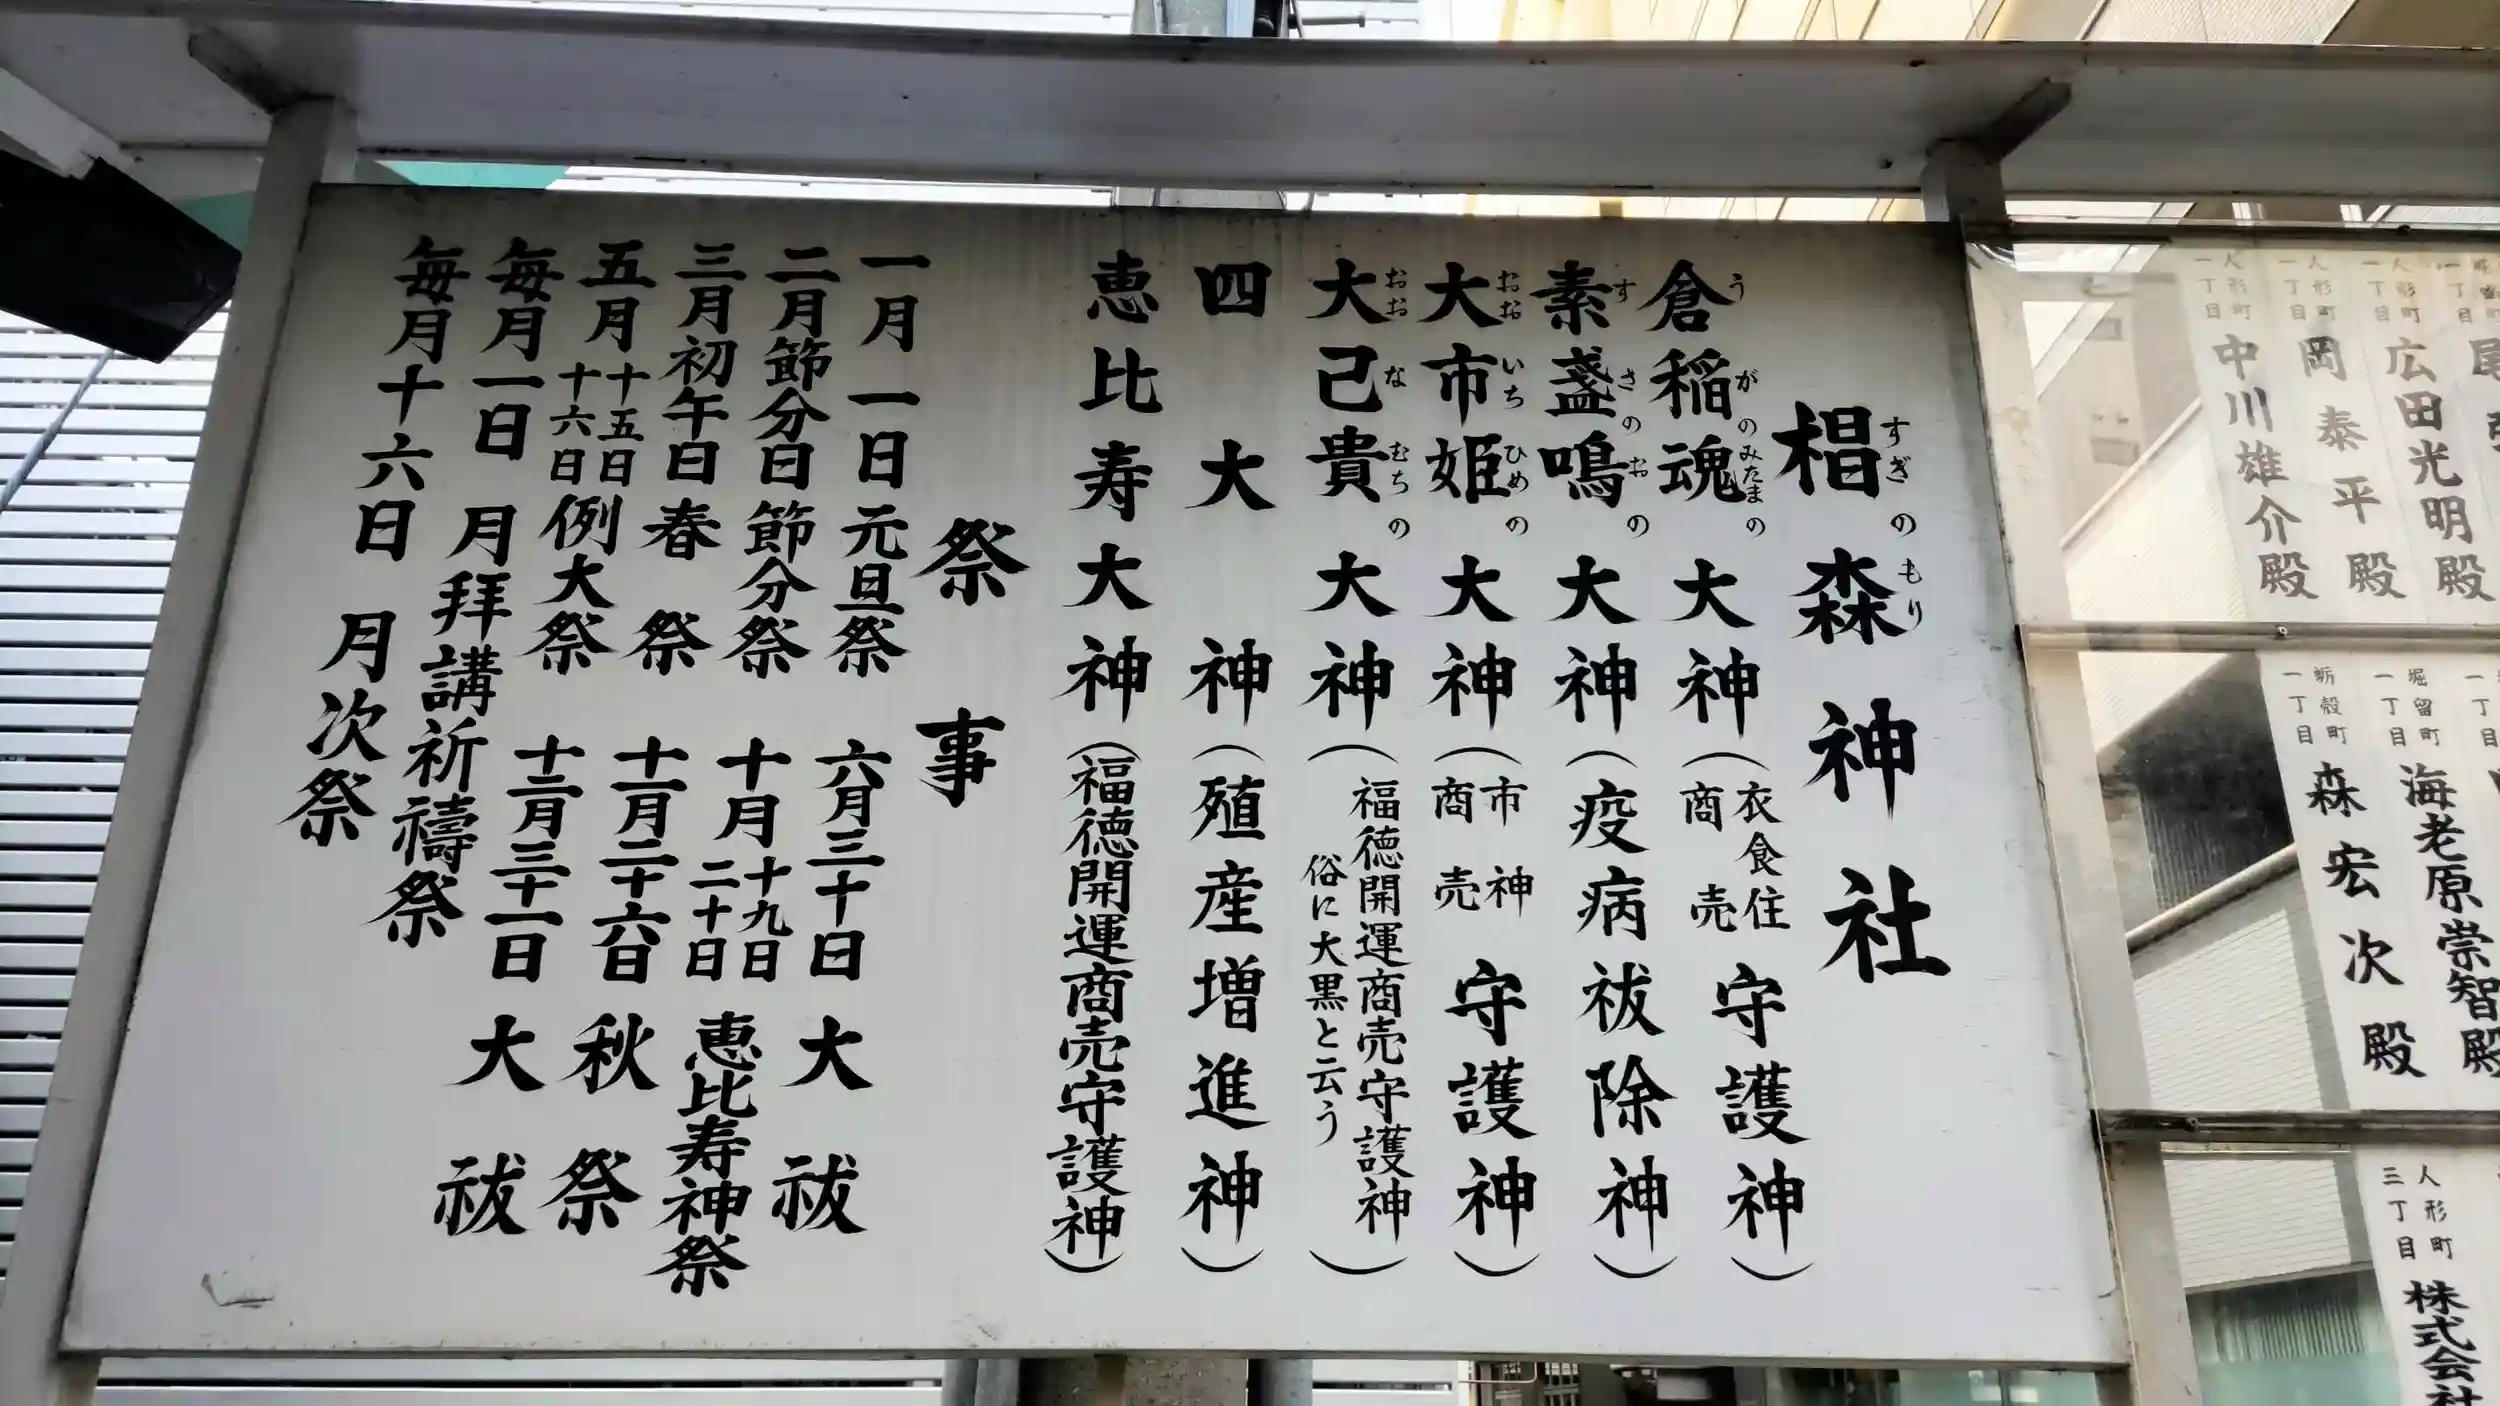 椙森神社
すぎのもり
倉稲魂大神(衣食住商売守護神)
うがのみたまの
素盞鳴大神(疫病祓除神)
すさのおの
大市姫大神(市神商売守護神)
おおいちひめの
大己貴大神(福徳開運商売守護神俗に大黒と云う)
おおなむちの
四大神(殖産増進神)
恵比寿大神(福徳開運商売守護神)
祭事
一月一日元旦祭
二月節分日節分祭
三月初午日春祭
五月十五日十六日例大祭
毎月一日月拝講祈禱祭
毎月十六日月次祭
六月三十日大祓
十月十九日二十日恵比寿神祭
十一月二十六日秋祭
十二月三十一日大祓
人形町一丁目
広田光明殿
人形町一丁目
岡泰平殿
人形町一丁目
中川雄介殿
堀留町一丁目
海老原崇智殿
蛎殻町一丁目
森宏次殿
人形町三丁目
株式会社